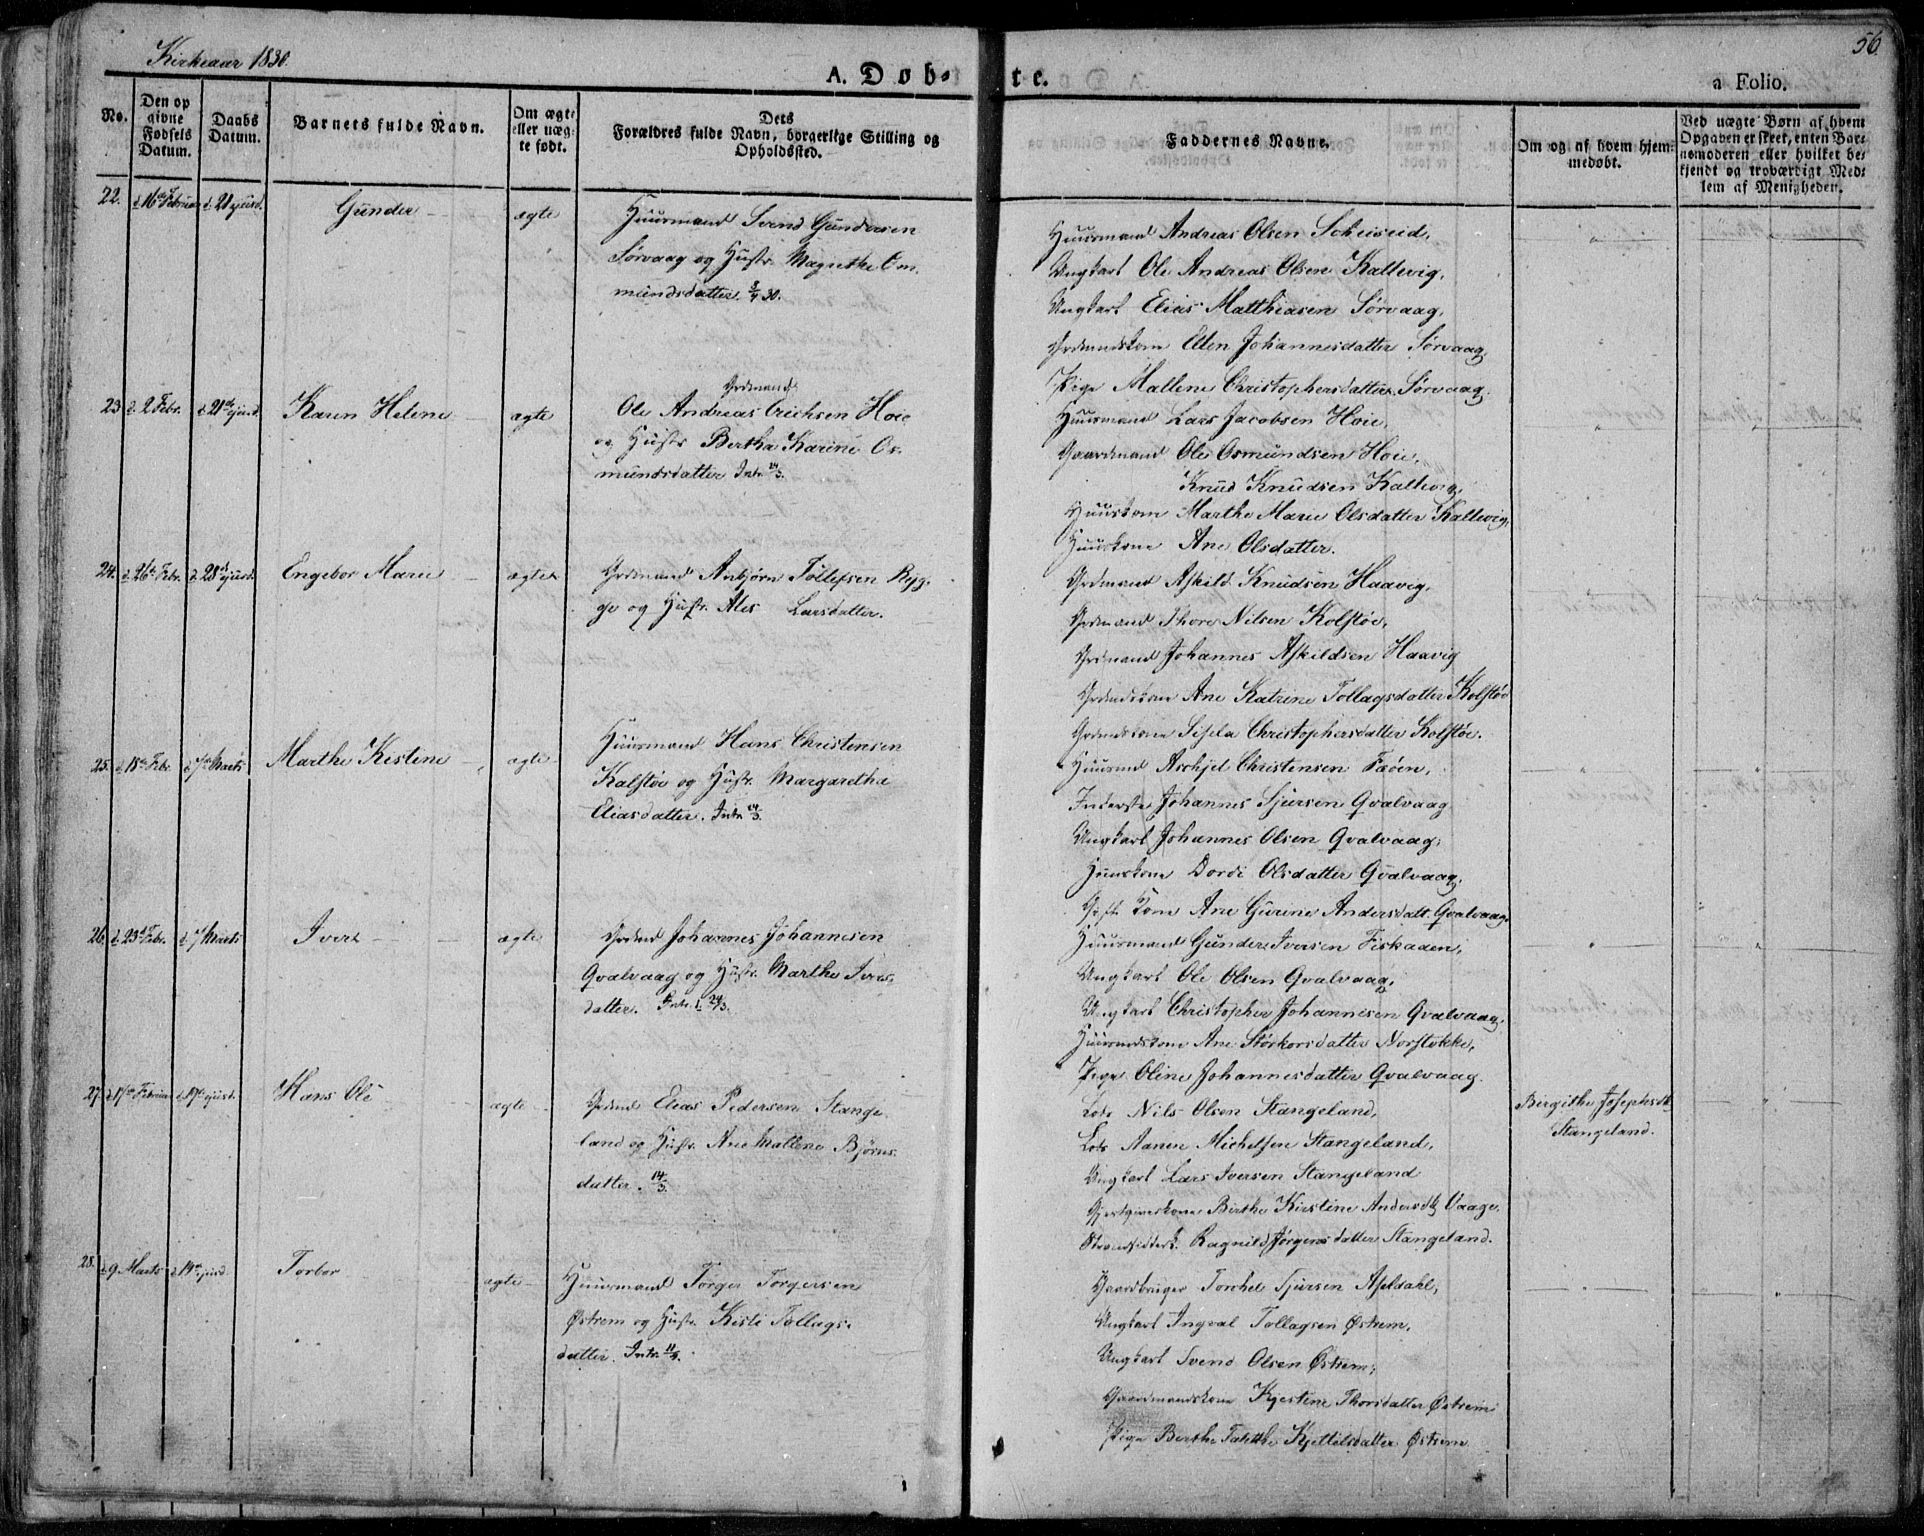 Kirkeaar 1830.
56
A. Døb-
te.
a Folio.
No.
Den op
givne
Fødsels
Datum.
Daabs
Datum.
Barnets fulde Navn.
Om ægte
eller uæg-
te født.
Dets
Forældres fulde Navn, borgerlige Stilling og
Opholdssted.
Faddernes Navne.
Om og af hvem hjem-
medøbt.
Ved uægte Børn af hvem
Opgaven er skeet, enten Bar-
nemoderen eller hvilket be-
kjendt og troværdigt Med-
lem af Menigheden.
22. d 16de Februar d 21 ejusd. Gunder ægte
Huusmand Svend Gundersen
Sørvaag og Hustr. Magrethe Om-
mundsdatter. 30.
Huusmand Andreas Olsen
Ungkarl Ole Andreas Olsen Kallevig,
Ungkarl Elias Matthiasen Sørvaag,
Ellen Johannesdatter Sørvaag,
Pige Mallene Christophersdatter Sørvaag.
23 d 2 Febr. d 21de ejusd. Karen Helene ægte
Grdmand
Ole Andreas Erichsen Hoie
og Hustr Bertha Karine Os-
mundsdatter Intr. 24/3.
Huusmand Lars Jacobsen Hoie,
Gaardmand Ole Osmundsen Hoie,
Knud Knudsen Kallevig,
Huuskone Marthe Marie Olsdatter Kallevig,
Huuskone Ane Olsdatter.
24. d 26de Febr. d 28de ejusd. Engebor Marie ægte
Grdmand Anbjørn Tollefsen Ryg-
ge og Hustr. Ales Larsdatter.
Grdmand Askild Knudsen Haavig,
Grdmand Thore Nilsen Kolstøe,
Grdmand Johannes Askildsen Haavig
Grdmdskone Ane Katrene Tollagsdatter Kolstøe
Grdmdskone Sisela Christophersdatter Kolstøe.
25. d 18de Febr d 7de Marts Marthe Kestine ægte
Huusmand Hans Christensen
Kalstøe og Hustr. Margaretha
Eliasdatter. Intr. 24/3.
Huusmd Asskjel Christensen Faøen,
Inderste Johannes Sjursen Qvalvaag
Ungkarl Johannes Olsen Qvalvaag,
Huuskone Dordi Olsdatter Qvalvaag,
Gift Kone Ane Gurine Andersdatt. Qvalvaag,
26. d 23de Febr. d 7 Marts Ivert ægte
Grdmd Johannes Johannesen
Qvalvaag og Hustr. Marthe Ivers-
datter. Intr. 24/3.
Huusmand Gunder Iversen Fiskaden,
Ungkarl Ole Olsen Qvalvaag,
Ungkarl Christopher Johannesen Qvalvaag,
Huusmdskone Ane Størkorsdatter Norstokke,
Pige Oline Johannesdatter Qvalvaag.
27. d 17de Februar d 19de ejusd. Hans Ole ægte
Grdmd Elias Pedersen Stange-
land og Hustr. Ane Mallene Bjørns-
datter. 14/3.
Lods Nils Olsen Stangeland,
Lods Aanen Michelsen Stangeland,
Ungkarl Lars Iversen Stangeland
Gjestgiverskone Birthe Kirstine Andersdtr Vaage,
Strandsidderk. Ragnild Jørgensdatter Stangeland.
Bergithe Josephsdtr
Stangeland.
28. d 9 Marts d 14de ejusd. Torbor ægte
Huusmand Torger Torgersen
Østrem og Hustr. Kisti Tollags-
datter. Intr.
Gaardbruger Torchel Sjursen Aseldahl,
Ungkarl Ingval Tollagsen Østrem,
Ungkarl Svend Olsen Østrem,
Gaardmandskone Kjestine Thorsdatter Østrem
Pige Berthe Kjettelsdatter Østrem